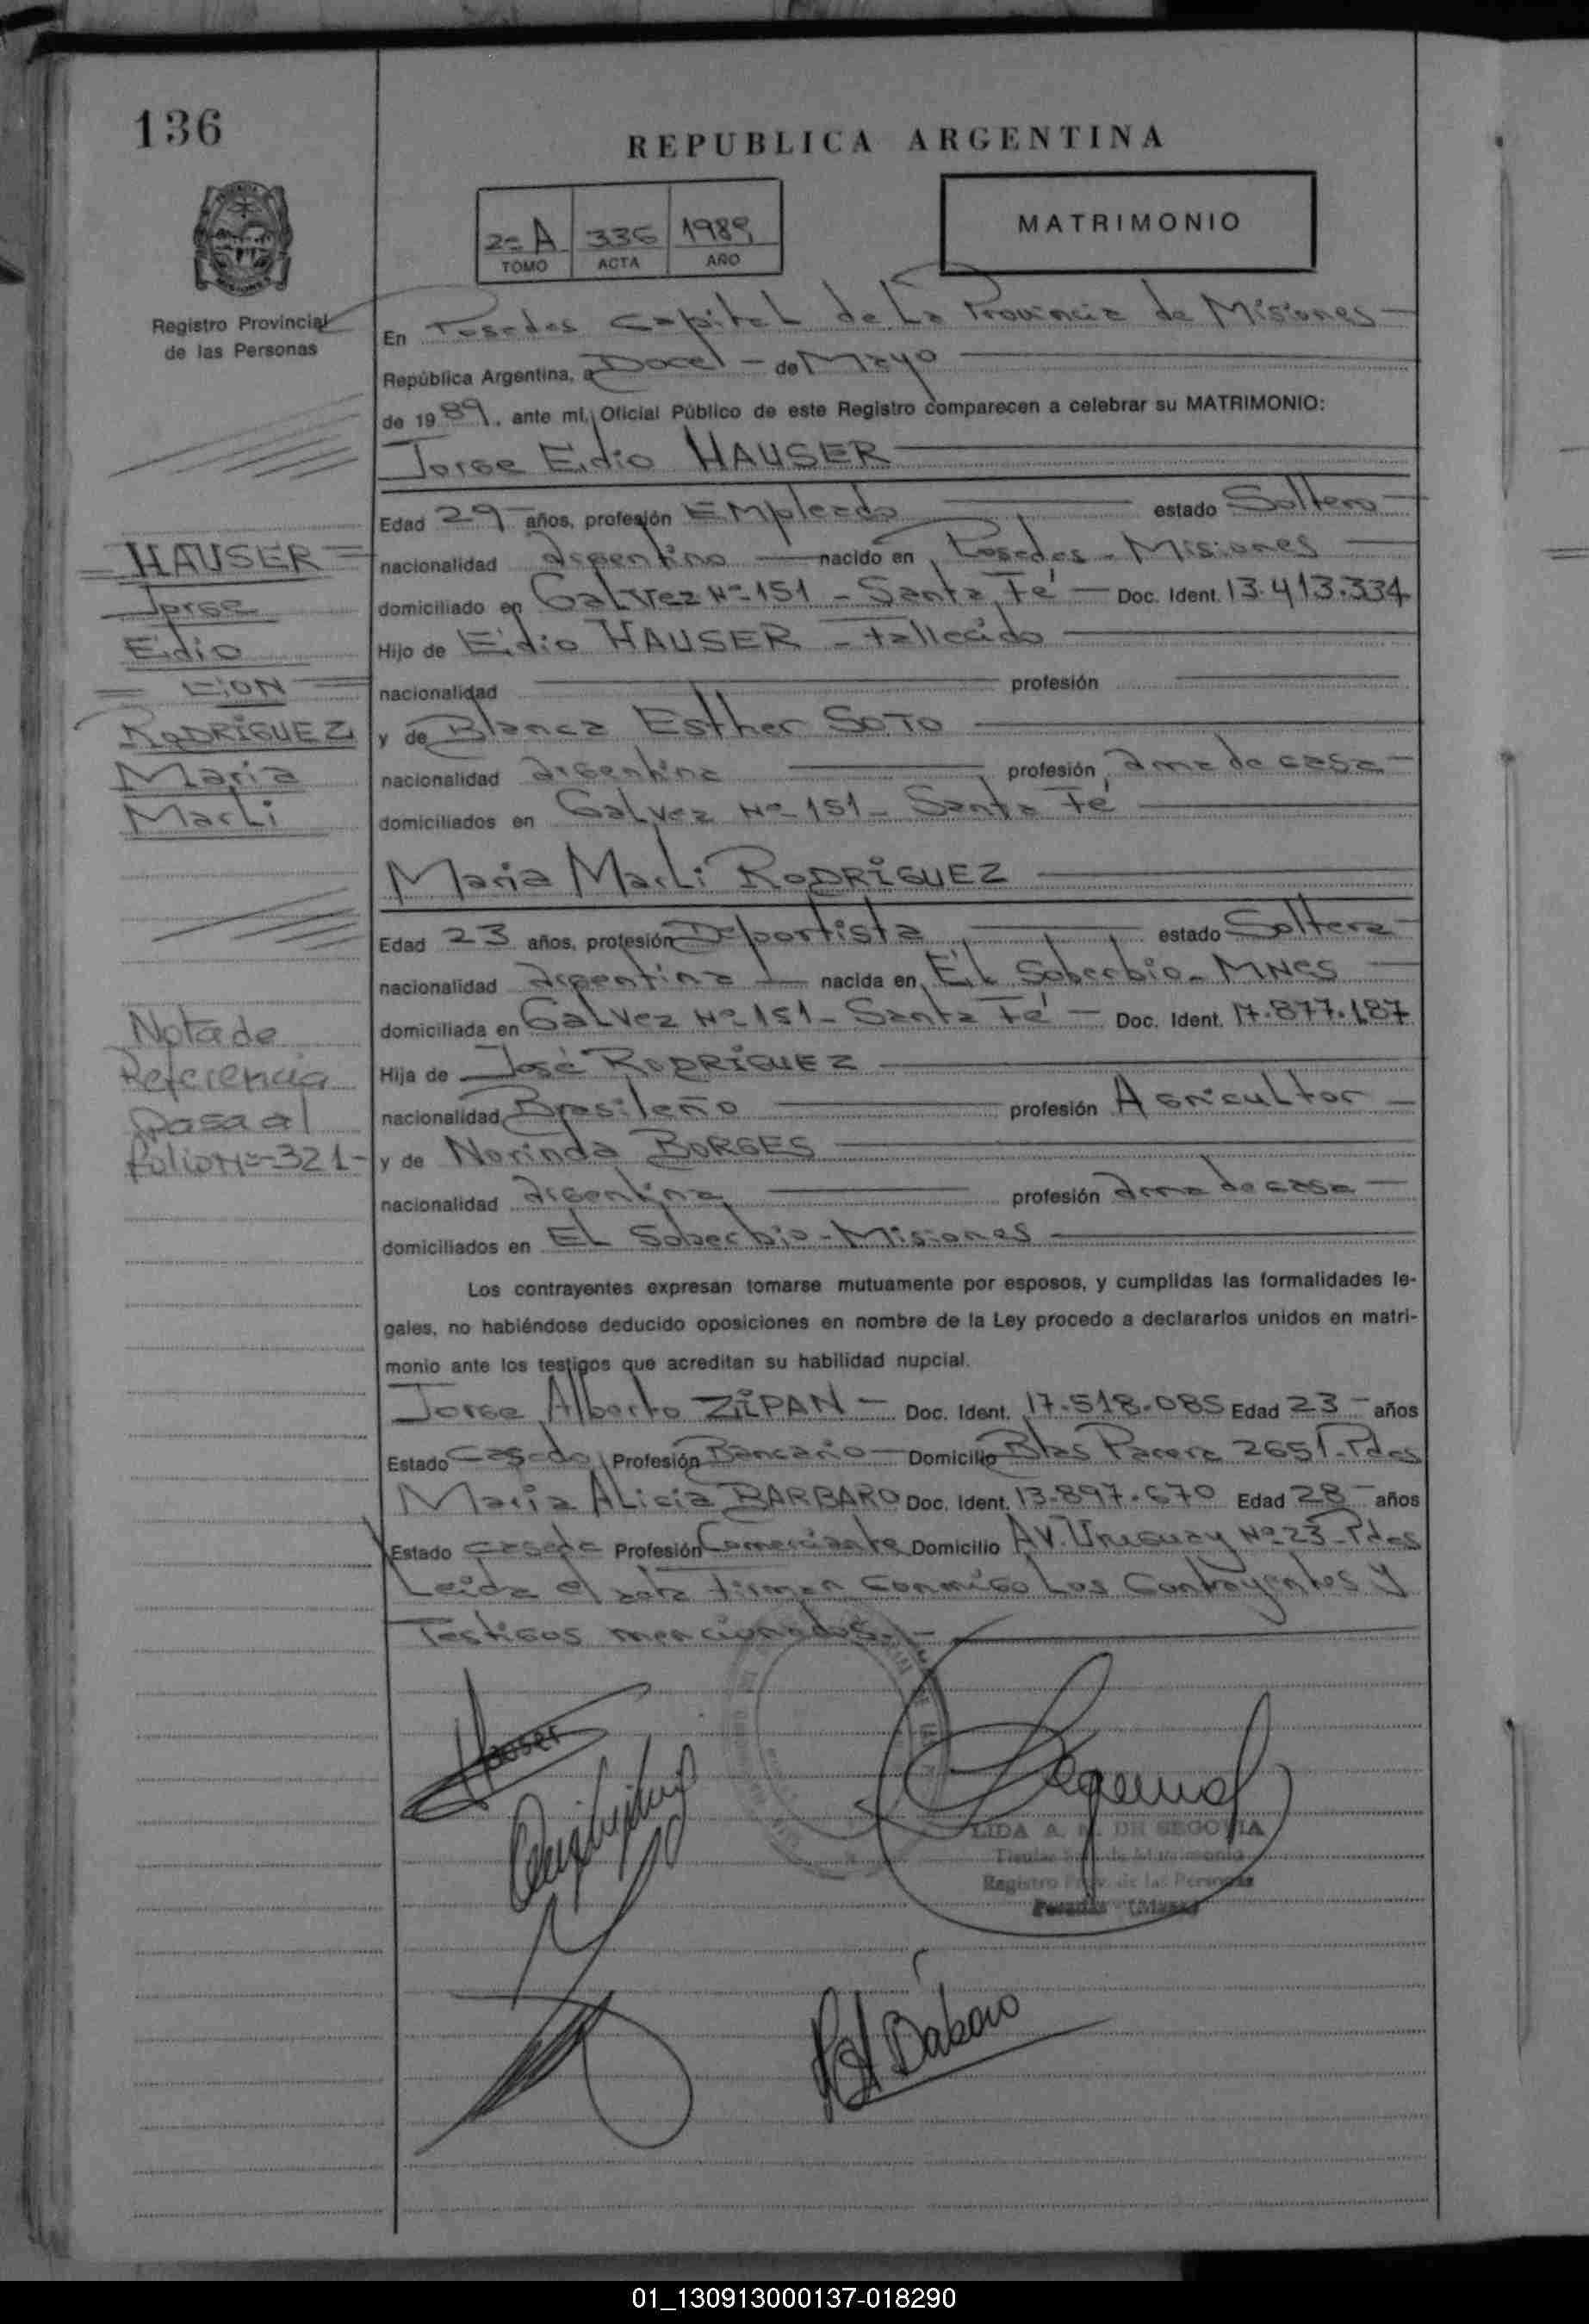 136
REPUBLICA ARGENTINA
2=A 336 1989
TOMO ACTA AÑO
MATRIMONIO
Registro Provincial
de las Personas
En Posadas Capital de La Provincia de Misiones
República Argentina, a Doce - de Mayo
de 1989, ante mí, Oficial Público de este Registro comparecen a celebrar su MATRIMONIO:
Jorge Eidio HAUSER
Edad 29 años, profesión EMpleado estado Soltero
nacionalidad argentino nacido en Posadas - Misiones
domiciliado en Galvez Nº 151 - Santa Fé Doc. Ident. 13.413.334
Hijo de Eidio HAUSER - Fallecido
nacionalidad profesión
y de Blanca Esther SOTO
nacionalidad argentina profesión ama de casa
domiciliados en Galvez Nº 151 - Santa Fé
Maria Marli RODRIGUEZ
Edad 23 años, profesión Deportista estado Soltera
nacionalidad argentina nacida en El Soberbio - MNES
domiciliada en Galvez Nº 151 - Santa Fé Doc. Ident. 17.877.187
Hija de José RODRIGUEZ
nacionalidad Brasileño profesión Agricultor
y de Norinda BORGES
nacionalidad argentina profesión ama de casa
domiciliados en EL Soberbio - Misiones
Los contrayentes expresan tomarse mutuamente por esposos, y cumplidas las formalidades le-
gales, no habiéndose deducido oposiciones en nombre de la Ley procedo a declararlos unidos en matri-
monio ante los testigos que acreditan su habilidad nupcial.
Jorge Alberto ZIPAN - Doc. Ident. 17.518.085 Edad 23 años
Estado Casado Profesión Bancario Domicilio Blas Parera 2651 - Pdas
Maria ALicia BARBARO Doc. Ident. 13.897.670 Edad 28 años
Estado casada Profesión Comerciante Domicilio AV. Uruguay Nº 23 - Pdas
Leida el acta firman conmigo Los Contrayentes y
Testigos mencionados.-
HAUSER
Jorge
Eidio
CON
RODRIGUEZ
Maria
Marli
Nota de
Referencia
Pasa al
folio Nº 321-
LIDA A. DE SEGOVIA
Registro Prov. de las Personas
01_130913000137-018290